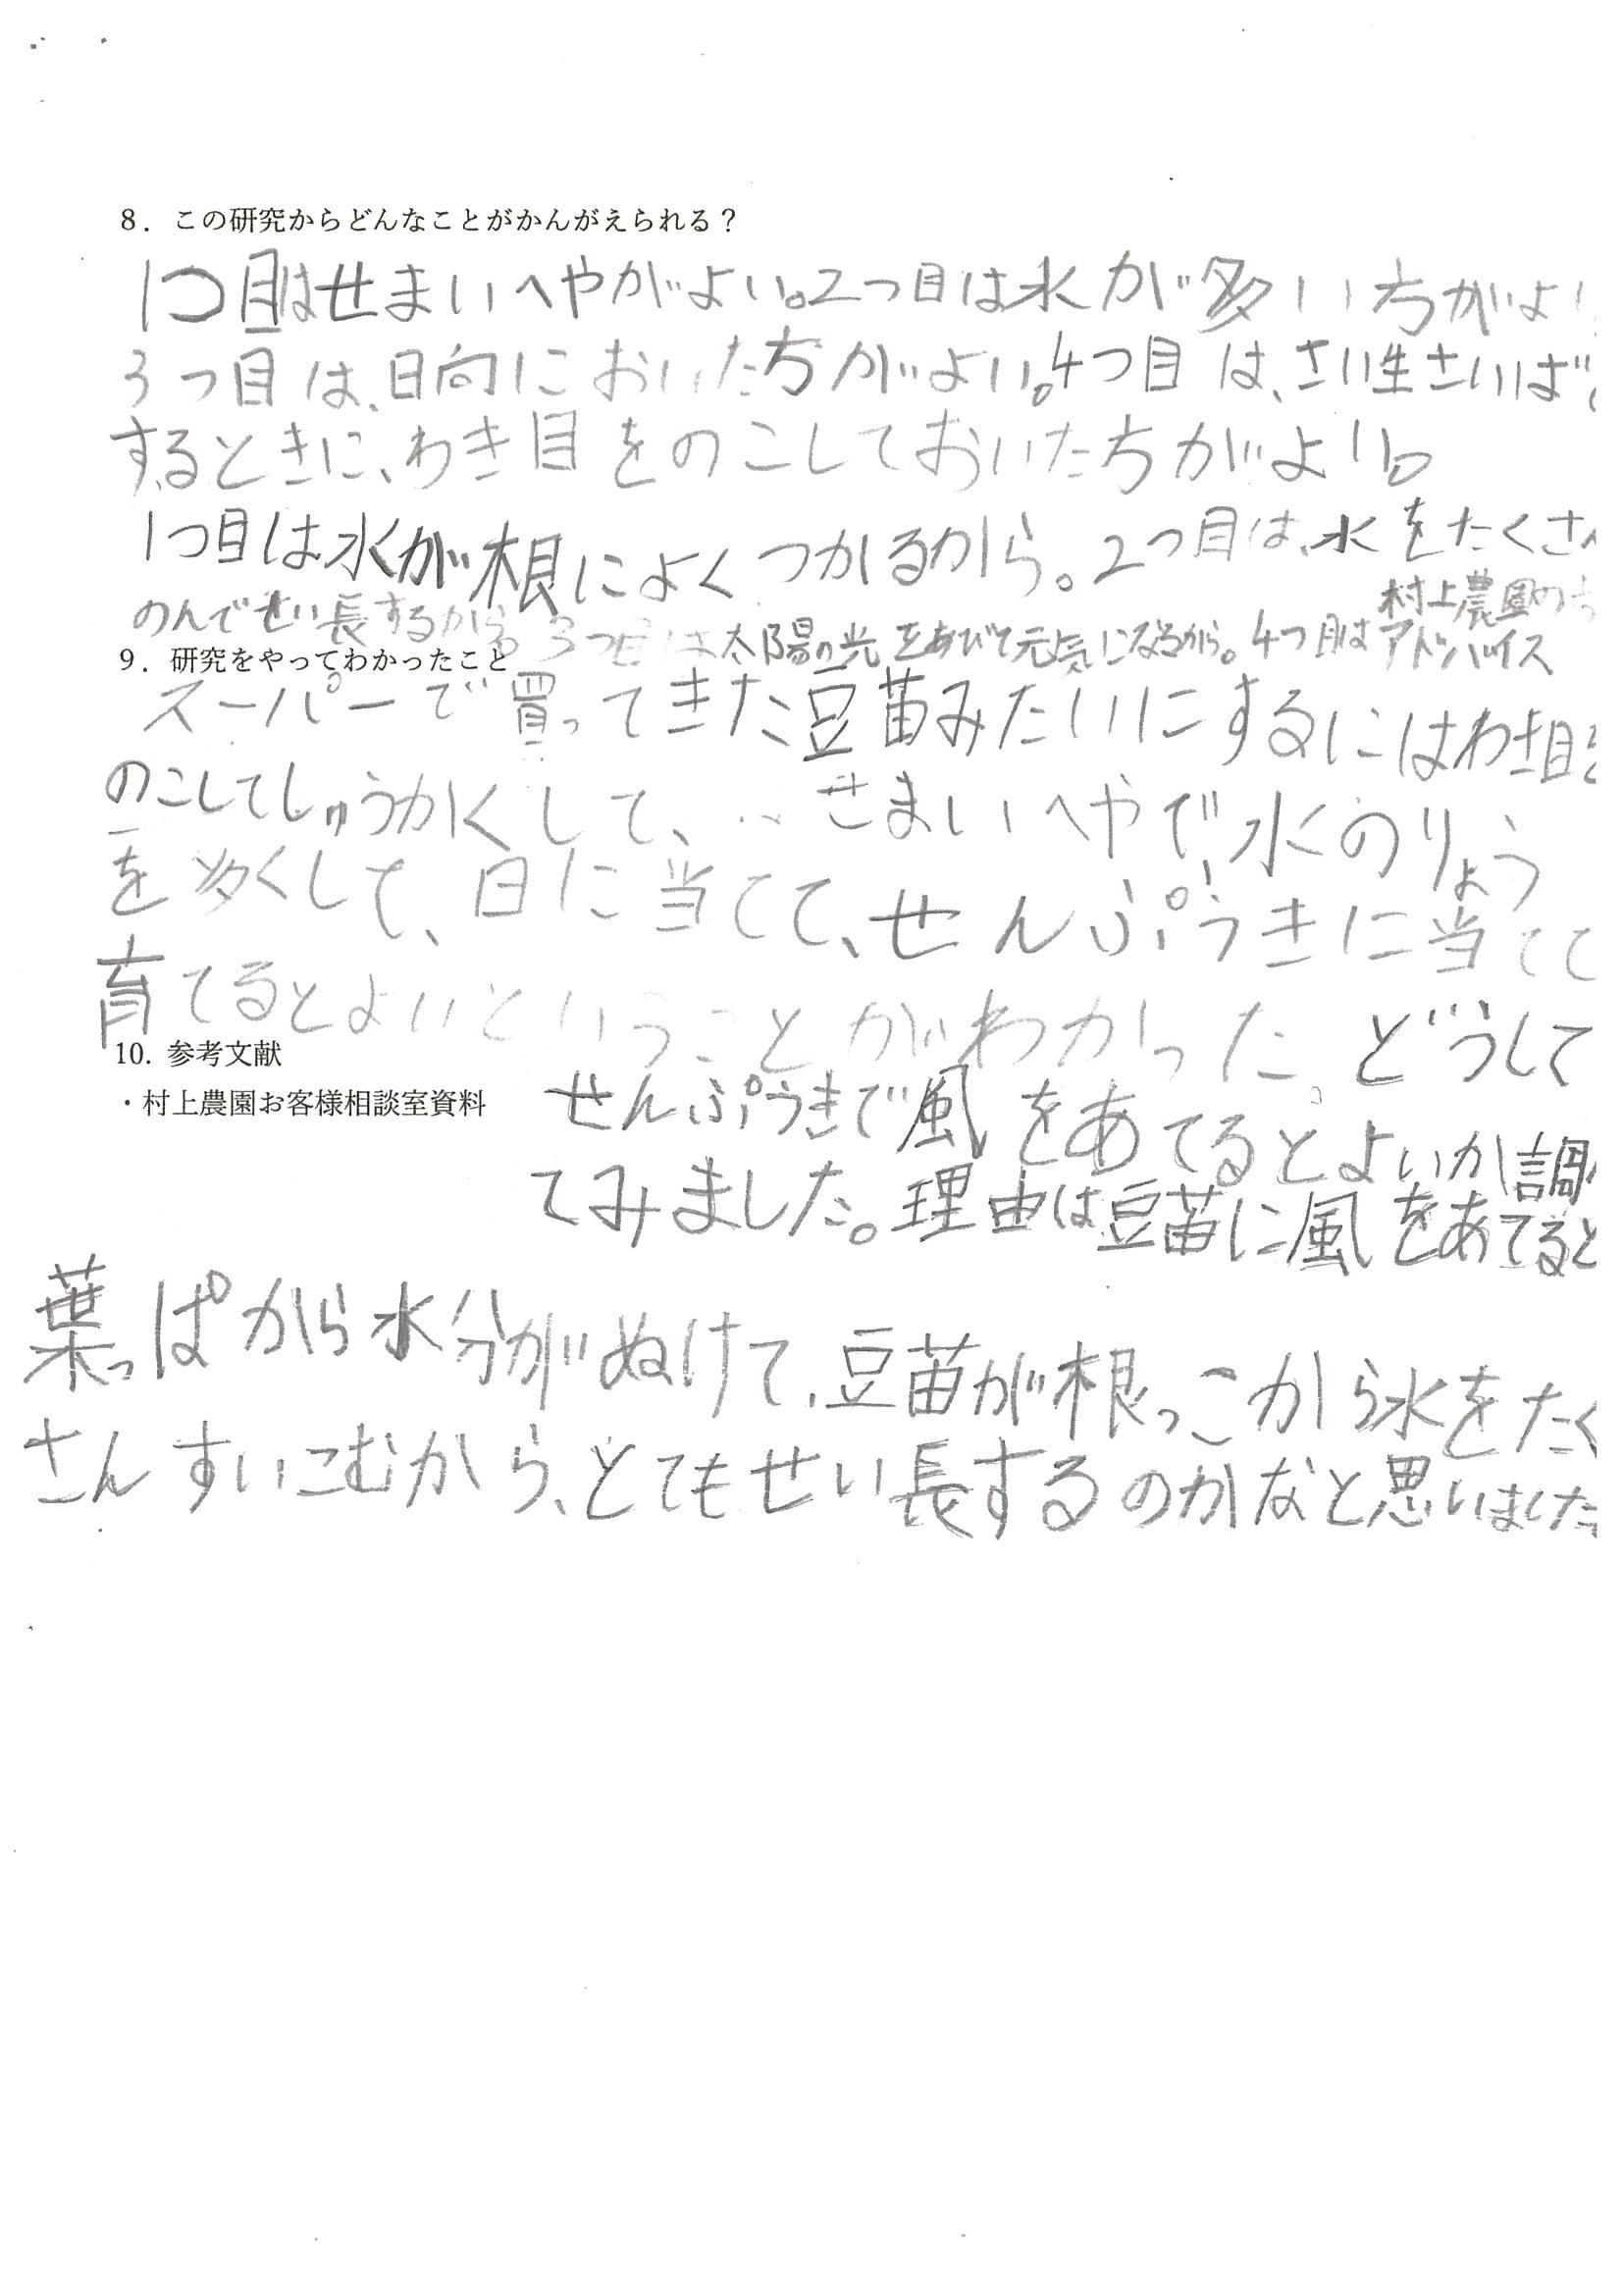 8．この研究からどんなことがかんがえられる？
1つ目はせまいへやがよい。2つ目は水が多い方がよい
3つ目は、日向においた方がよい。4つ目は、さい生さいばい
するときに、わき目をのこしておいた方がよい。
1つ目は水が根によくつかるから。2つ目は、水をたくさん
のんでせい長するから 3つ目は太陽の光をあびて元気になるから。4つ目は村上農園の
アドバイス
9．研究をやってわかったこと
スーパーで買ってきた豆苗みたいにするにはわき目を
のこしてしゅうかくして、せまいへやで、水のりょう
を多くして、日に当てて、せんぷうきに当てて
育てるとよいということがわかった。どうして
10. 参考文献
・村上農園お客様相談室資料
せんぷうきで風をあてるとよいか調べ
てみました。理由は豆苗に風をあてると
葉っぱから水分がぬけて、豆苗が根っこから水をたく
さんすいこむから、とてもせい長するのかなと思いました